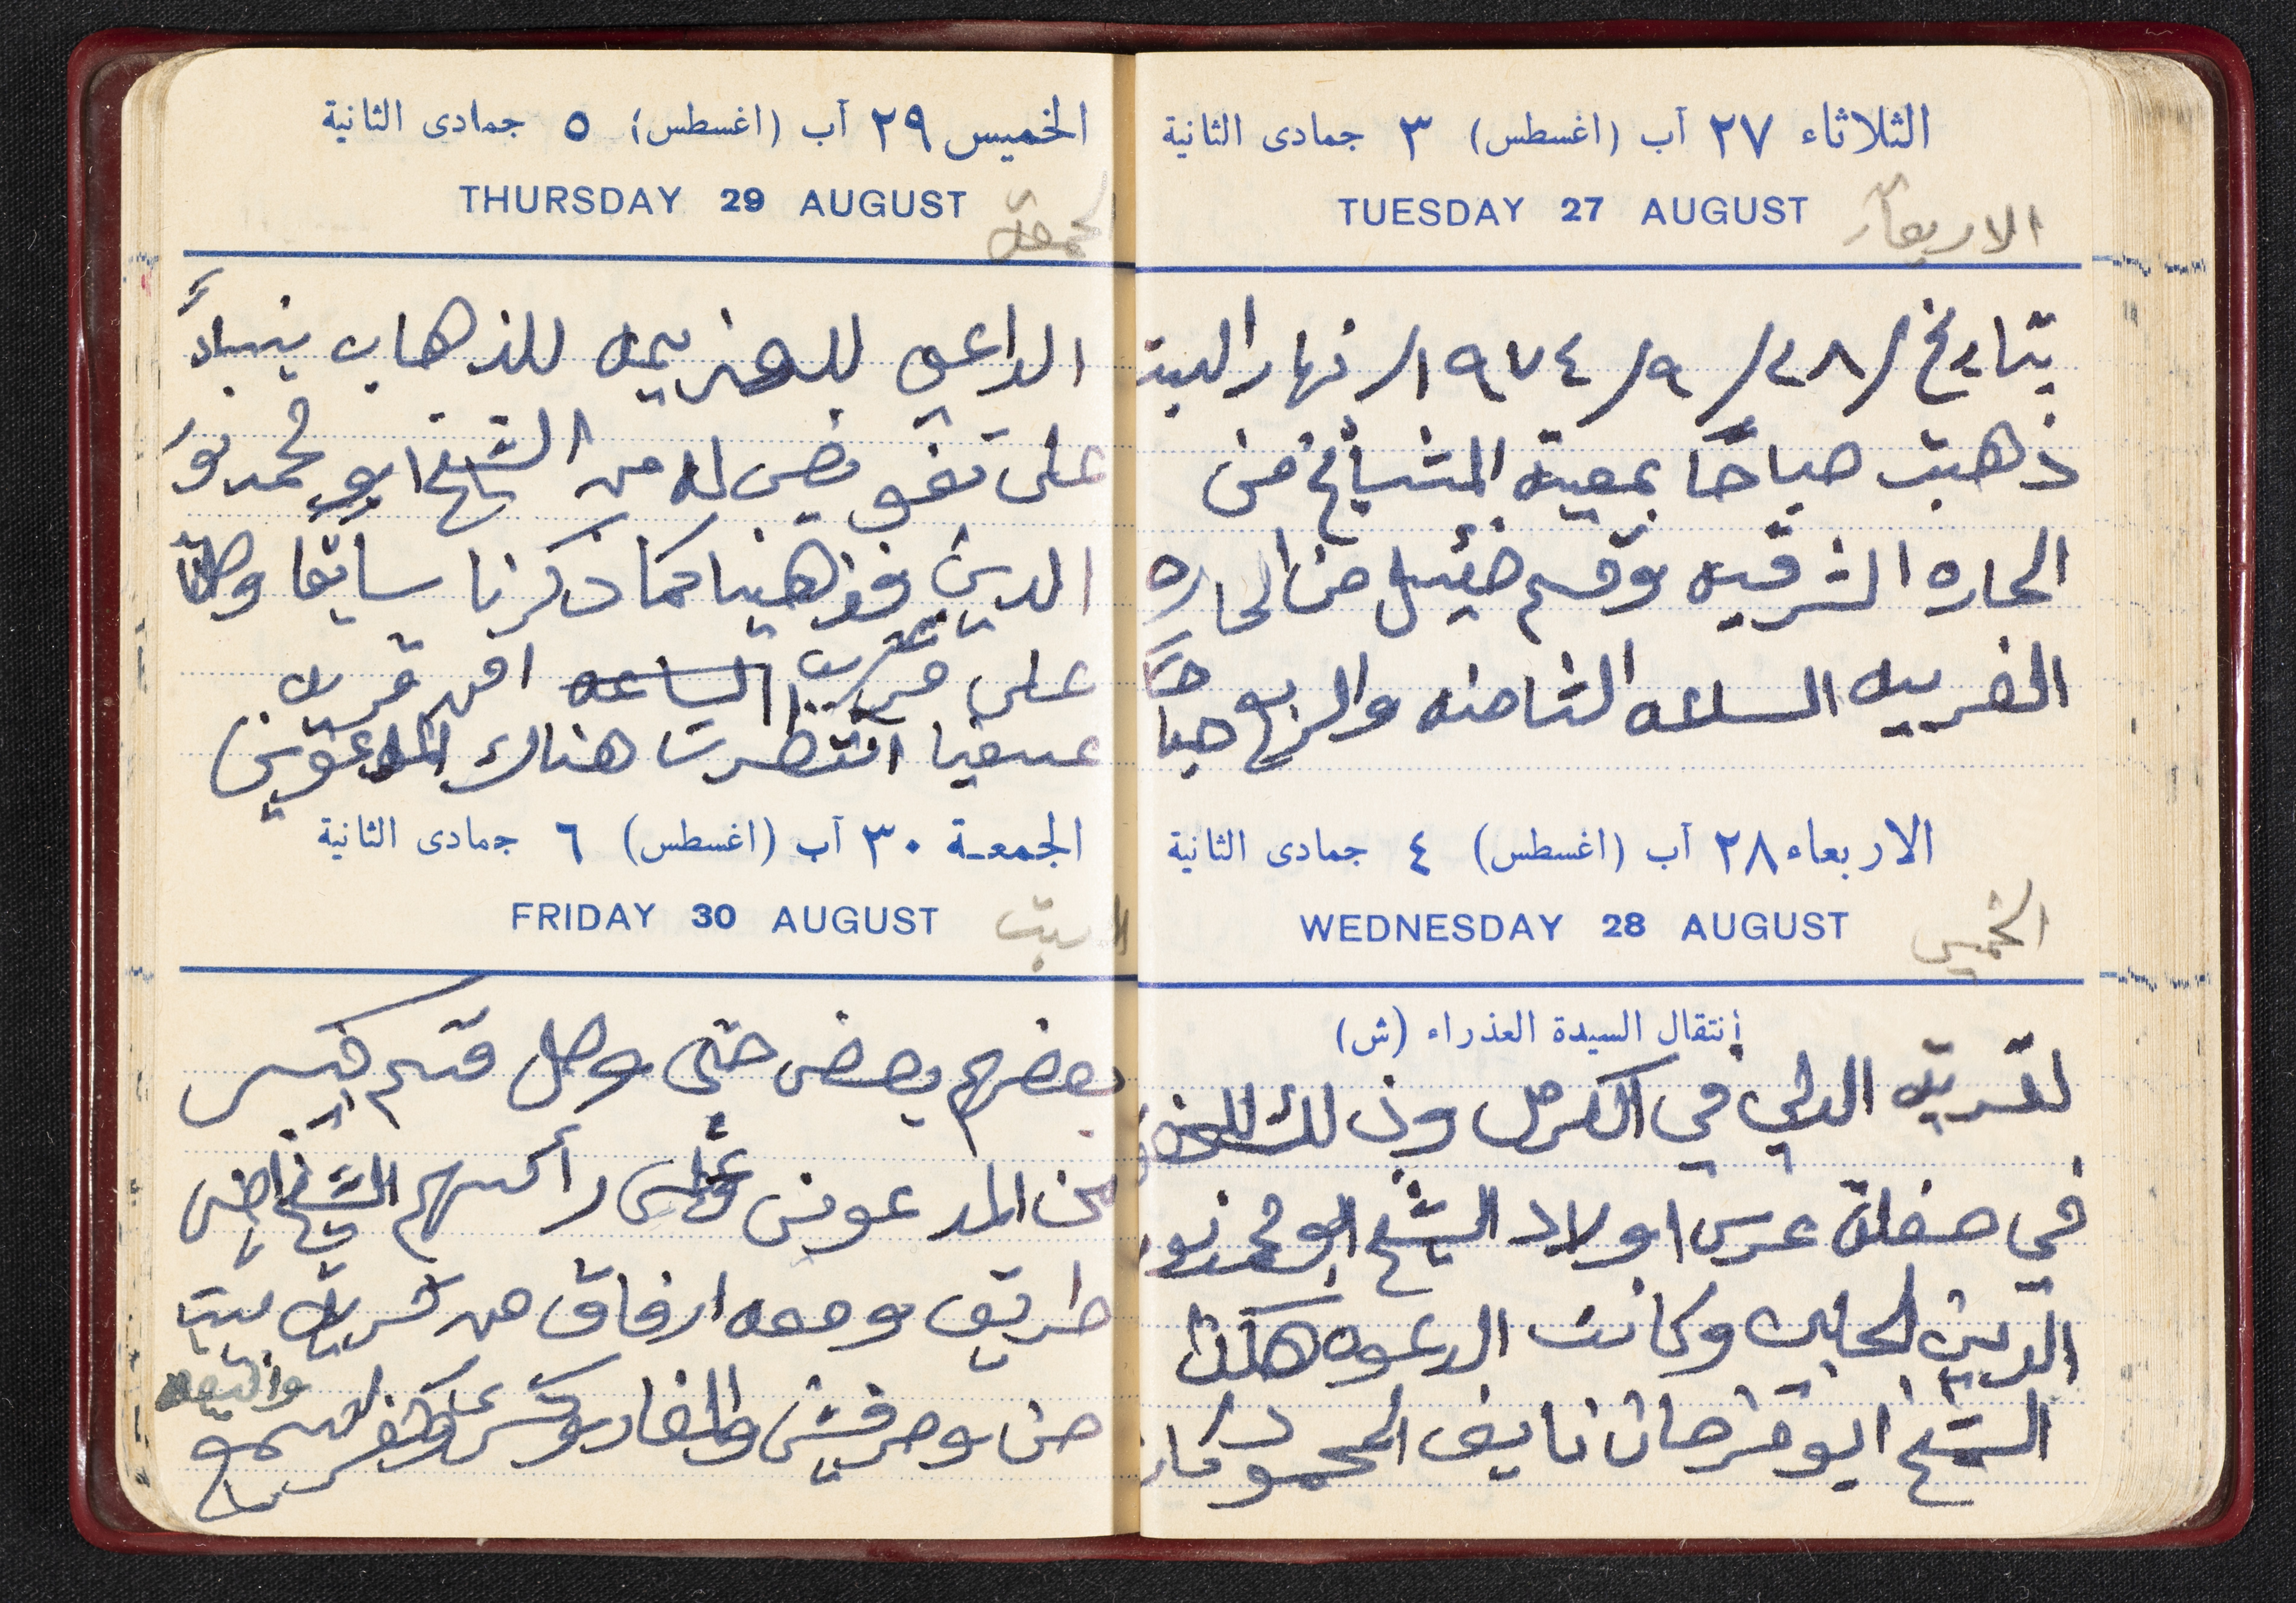 الثلاثاء ٢٧ آب (اغسطس) ٣ جمادى الثانية
TUESDAY 27 AUGUST
الاربعاء
بتاريخ /٢٨/ ٩/ ١٩٧٤/ نهار السبت
ذهبت صباحًا بمعية المشايخ من
الحاره الشرقيه وقسم ضئيل من الحاره
الغربيه الساعه الثامنه والربع صباحًا
الاربعاء ٢٨ آب (اغسطس) ٤ جمادى الثانية
WEDNESDAY 28 AUGUST
الخميس
إنتقال السيدة العذراء (ش)
لقريه الدالي في الكرمل وذلك
في حفلة عرس اولاد الشيخ ابو محمد نور
الدين الحلبي وكانت الدعوه هكذا
الشيخ ابو فرحان نايف المحمود كان
الخميس ٢٩ آب (اغسطس) ٥ جمادى الثانية
THURSDAY 29 AUGUST
الجمعة
الداعي للعزيمه للذهاب بناءً
على تفويض له من الشيخ ابو محمد نور
الدين فذهبنا كما ذكرنا سابقا وصلنا
على مقربه الساعه من قرية
عسفيا انتظرت هناك المدعوين
الجمعـة ٣٠ آب (اغسطس) ٦ جمادى الثانية
FRIDAY 30 AUGUST
السبت
بعضهم بعض حتى وصل قسم كبير
من المدعوين وعلى رأسهم الشيخ امين
طريف ومعه ارفاق من قرية بيت
جن وحرفيش والمغار وكسرى وكفرسميع